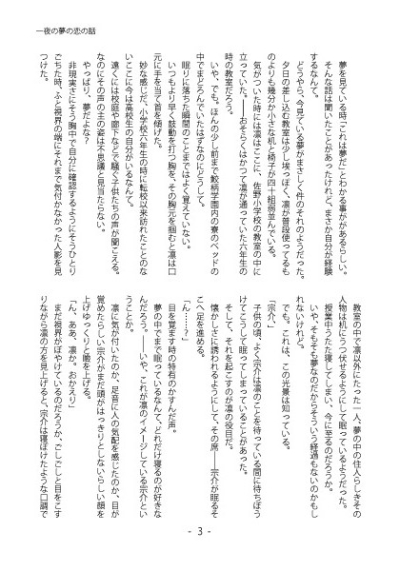 一夜の夢の恋の話
夢を見ている時「これは夢だ」とわかる事ががあるらしい。
そんな話は聞いたことがあったけれど、まさか自分が経験
するなんて。
どうやら、今見ている夢がまさしく件のそれのようだった。
夕日の差し込む教室は少し埃っぽく、凛が普段使ってるも
のよりも幾分か小さな机と椅子が四十組弱並んでいる。
気がついた時には凛はここに、佐野小学校の教室の中に
立っていた。――おそらくはかつて凛が通っていた六年生の
時の教室だろう。
いや、でも。ほんの少し前まで鮫柄学園内の寮のベッドの
中でまどろんでいたはずなのにどうして。
眠りに落ちた瞬間のことまではよく覚えていない。
いつもより早く鼓動を打つ胸を、その胸元を掴むと凛は口
元に手を当て首を傾げた。
妙な感じだ、小学校六年生の時に転校以来訪れたことのな
いここに今は高校生の自分がいるなんて。
遠くには校庭や廊下などで騒ぐ子供たちの声が聞こえる。
なのにその声の主の姿は不思議と見当たらない。
やっぱり、夢だよな？
非現実さにそう胸中で自分に確認するようにそうひとり
ごちた時、ふと視界の端にそれまで気付かなかった人影を見
つけた。
教室の中で凛以外にたった一人、夢の中の住人らしきその
人物は机にうつ伏せるようにして眠っているようだった。
授業中うたた寝してしまい、今に至るのだろうか。
いや、そもそも夢なのだからそういう経過もないのかもし
れないけれど。
でも。これは、この光景は知っている。
「宗介」
子供の頃、よく宗介は凛のことを待っている間に待ちぼう
けてこうして眠ってしまっていることがあった。
そして、それを起こすのが凛の役目だ。
懐かしさに誘われるようにして、その席――宗介が眠るそ
こへ足を進める。
「ん……？」
目を覚ます時の特有のかすんだ声。
夢の中でまで眠っているなんて、どれだけ寝るのが好きな
んだろう。――いや、これが凛のイメージしている宗介とい
うことか。
凛に気が付いたのか、足音に人の気配を感じたのか、目が
覚めたらしい宗介がまだ頭がはっきりとしないらしい顔を
上げゆっくりと瞼を上げる。
「ん、ああ、凛か。おかえり」
まだ視界がぼやけているのだろうか、ごしごしと目をこす
りながら凛の方を見上げると、宗介は寝ぼけたような口調で
- 3 -